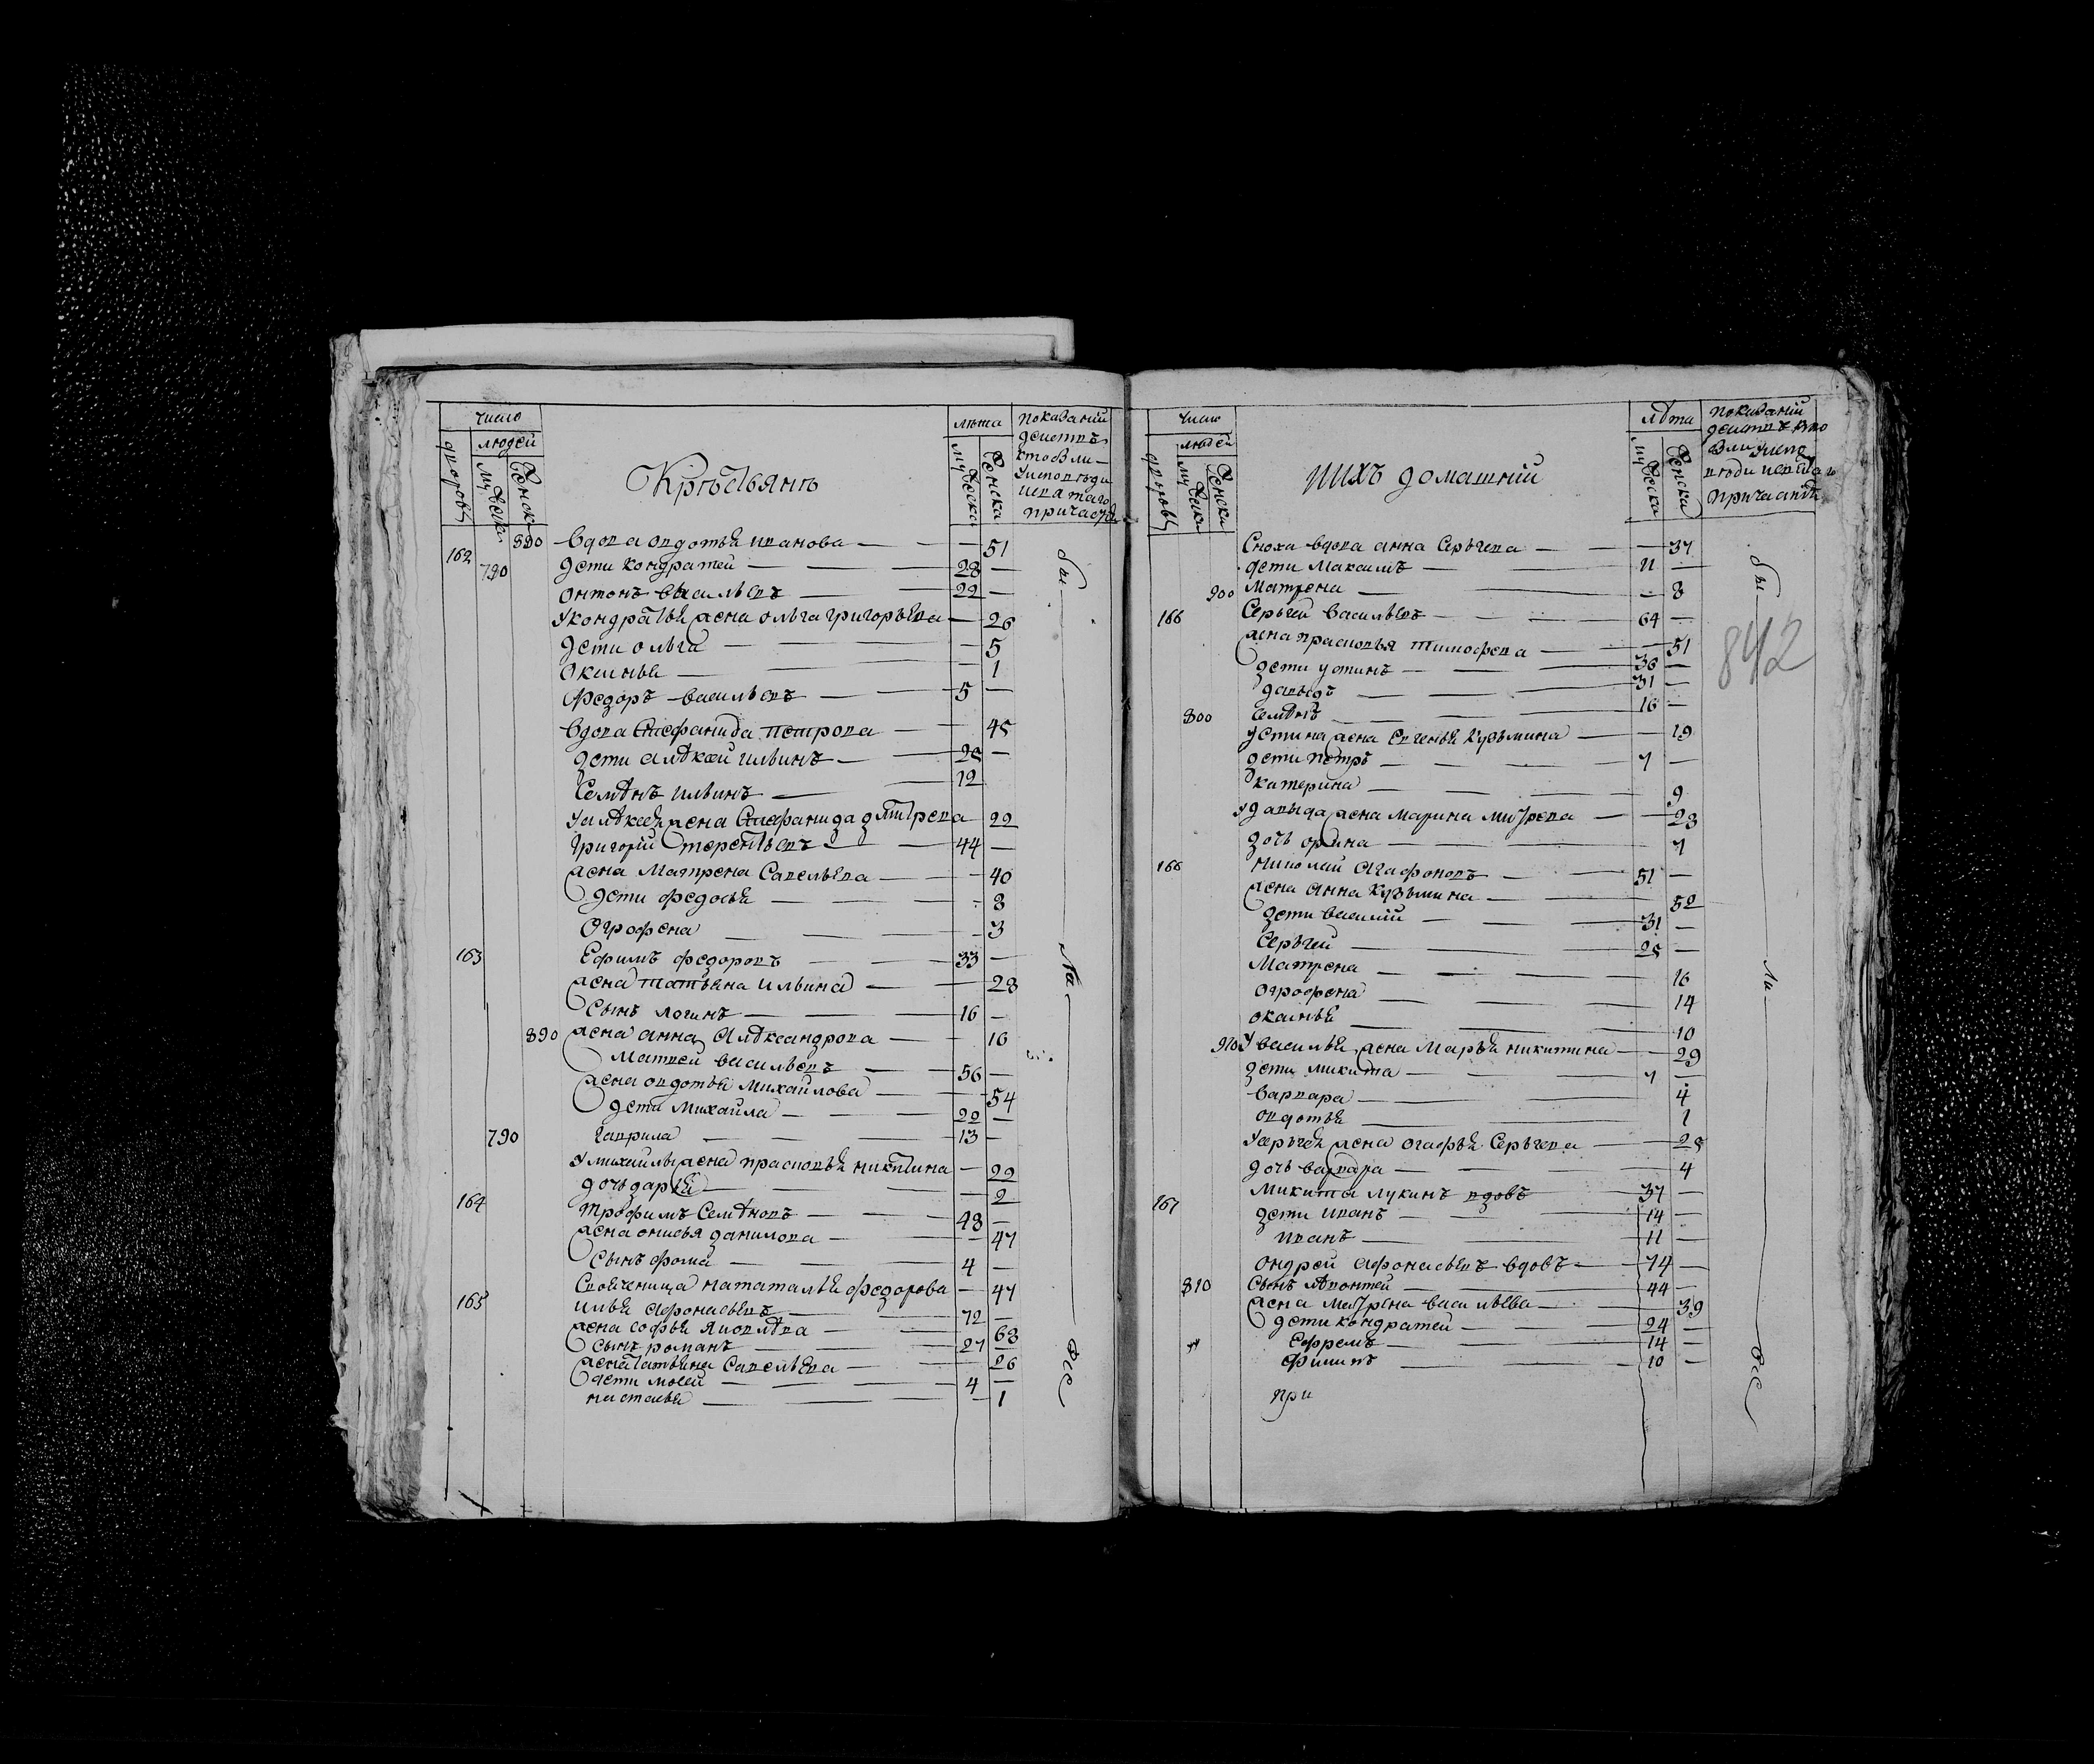 число
людей
дворовъ
мужеска
женска
Крестьянъ
лѣта
мужеска
женска
показаний
действъ
кто
при
880 вдова овдотья иванова — 51
162 790 дети кондратей — 28
онтонъ васильевъ — 22
У кондратья жена ольга григорьева — 26
дети ольга — 5
оксинья — 1
Федоръ васильевъ — 5
вдова Стефанида петрова — 45
дети алѣксей ильинъ — 25
Семѣнъ ильинъ — 12
У алѣксея жена Стефанида дмитрева — 22
Григорий терентьевъ — 44
жена Матрена Савельева — 40
дети федосья — 8
Огрофена — 3
163 Ефимъ федоровъ — 33
жена татьяна ильина — 28
Сынъ логинъ — 16
890 жена анна Алѣксандрова — 16
Матвей васильевъ — 56
жена овдотья михайлова — 54
дети михаила — 22
790 гаврила — 13
У михаилы жена прасковья никитина — 22
дочь дарья — 2
164 трофимъ Семѣновъ — 48
жена онисья данилова — 47
Сынъ фома — 4
Своячница нататалья федорова — 47
165 илья афонасьевъ — 72
жена софья яковлѣва — 63
Сынъ романъ — 27
жена татьяна Савельева — 26
дети мосей — 4
настасья — 1
бы
ли
все
число
людей
дворовъ
мужеска
женска
ИИХЪ домашний
лѣта
мужеска
женска
показаний
Сноха вдова анна Серьгева — 37
дети Максимъ — 11
900 Матрена — 8
166 Серьгей васильевъ — 64
жена прасковья тимофева — 51
дети устинъ — 36
давыдъ — 31
800 семѣнъ — 16
У устина жена Евгенья кузьмина — 19
дети петръ — 7
катерина — 9
У давыда жена марина митрева — 23
дочь орина — 7
166 николай агафоновъ — 51
жена анна кузьмина — 52
дети василий — 31
Серьгей — 25
Матрена — 16
огрофена — 14
оксинья — 10
910 У василья жена Марья никитина — 29
дети микита — 7
варвара — 4
овдотья — 1
У серьгея жена огафья Серьгева — 25
дочь варвара — 4
167 Микита лукинъ вдовъ — 37
дети иванъ — 14
иванъ — 11
ондрей афонасьевъ вдовъ — 74
810 Сынъ лѣвонтей — 44
жена матрена васильева — 39
дети кондратей — 24
Ефремъ — 14
Филипъ — 10
при
бы
ли
все
842